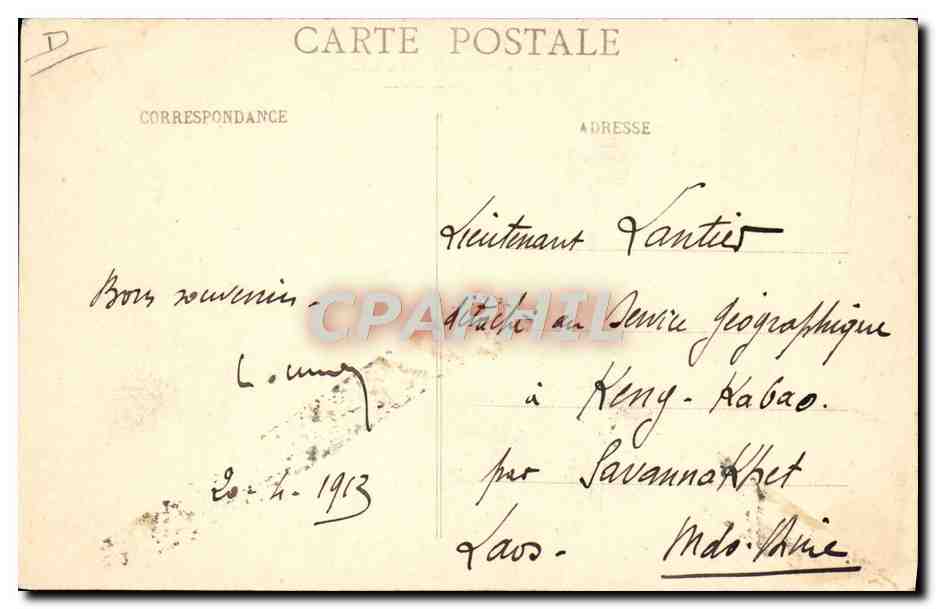 D
CARTE POSTALE
CORRESPONDANCE
ADRESSE
Bons souvenirs -
20-4-1913
Lieutenant Lantier
détaché au Service géographique
à Keng-Kabao.
par Savannakhet
Laos- Indo-Chine
CPAPHIL